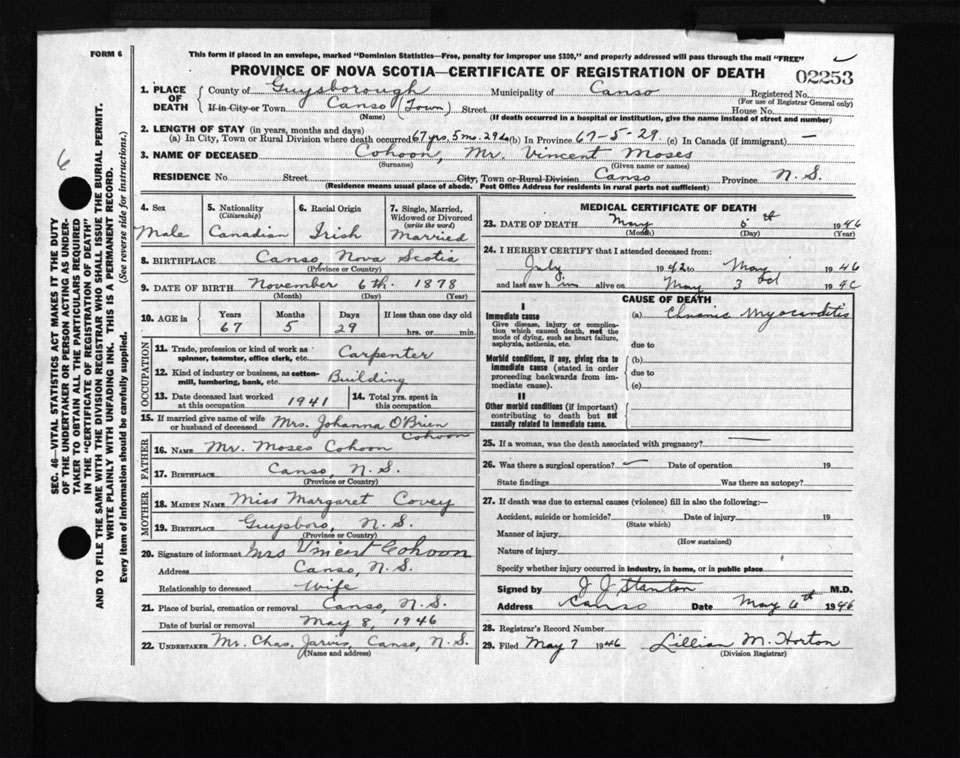 FORM 6
This form if placed in an envelope, marked "Dominion Statistics—Free, penalty for improper use $300," and properly addressed will pass through the mail "FREE"
PROVINCE OF NOVA SCOTIA—CERTIFICATE OF REGISTRATION OF DEATH
02253
6
SEC. 46—VITAL STATISTICS ACT MAKES IT THE DUTY
OF THE UNDERTAKER OR PERSON ACTING AS UNDER-
TAKER TO OBTAIN ALL THE PARTICULARS REQUIRED
IN THE "CERTIFICATE OF REGISTRATION OF DEATH"
AND TO FILE THE SAME WITH THE DIVISION REGISTRAR WHO SHALL ISSUE THE BURIAL PERMIT.
WRITE PLAINLY WITH UNFADING INK. THIS IS A PERMANENT RECORD.
Every item of information should be carefully supplied. (See reverse side for instructions.)
1. PLACE OF DEATH
County of Guysborough Municipality of Canso Registered No.
(For use of Registrar General only)
If in City or Town Canso (Town) Street House No.
(Name) (If death occurred in a hospital or institution, give the name instead of street and number)
2. LENGTH OF STAY (in years, months and days)
(a) In City, Town or Rural Division where death occurred 67 yrs. 5 mo. 29 (b) In Province 67-5-29. (c) In Canada (if immigrant) —
3. NAME OF DECEASED Cohoon, Mr. Vincent Moses
(Surname) (Given name or names)
RESIDENCE No Street City, Town or Rural Division Canso Province N. S.
(Residence means usual place of abode. Post Office Address for residents in rural parts not sufficient)
4. Sex
Male
5. Nationality
(Citizenship)
Canadian
6. Racial Origin
Irish
7. Single, Married, Widowed or Divorced
(write the word)
Married
8. BIRTHPLACE Canso, Nova Scotia
(Province or Country)
9. DATE OF BIRTH November 6th. 1878
(Month) (Day) (Year)
10. AGE in
Years Months Days If less than one day old
67 5 29 hrs. or min.
OCCUPATION
11. Trade, profession or kind of work as spinner, teamster, office clerk, etc. Carpenter
12. Kind of industry or business, as cotton-mill, lumbering, bank, etc. Building
13. Date deceased last worked at this occupation 1941
14. Total yrs. spent in this occupation
15. If married give name of wife or husband of deceased Mrs. Johanna O'Brien Cohoon
FATHER
16. NAME Mr. Moses Cohoon
17. BIRTHPLACE Canso, N. S.
(Province or Country)
MOTHER
18. MAIDEN NAME Miss Margaret Covey
19. BIRTHPLACE Guysboro, N. S.
(Province or Country)
20. Signature of informant Mrs Vincent Cohoon
Address Canso, N. S.
Relationship to deceased Wife
21. Place of burial, cremation or removal Canso, N. S.
Date of burial or removal May 8, 1946
22. UNDERTAKER Mr. Chas. Jarvis, Canso, N. S.
(Name and address)
MEDICAL CERTIFICATE OF DEATH
23. DATE OF DEATH May 5th 1946
(Month) (Day) (Year)
24. I HEREBY CERTIFY that I attended deceased from:
July 1942 to May 1946
and last saw him alive on May 3 1946
CAUSE OF DEATH
I
Immediate cause (a) Chronic Myocarditis
Give disease, injury or complication which caused death, not the mode of dying, such as heart failure, asphyxia, asthenia, etc.
due to
Morbid conditions, if any, giving rise to immediate cause (stated in order proceeding backwards from immediate cause).
(b)
due to
(c)
II
Other morbid conditions (if important) contributing to death but not causally related to immediate cause.
25. If a woman, was the death associated with pregnancy? —
26. Was there a surgical operation? — Date of operation 19
State findings Was there an autopsy?
27. If death was due to external causes (violence) fill in also the following:—
Accident, suicide or homicide? Date of injury 19
(State which)
Manner of injury
(How sustained)
Nature of injury
Specify whether injury occurred in industry, in home, or in public place
Signed by J J Stanton M.D.
Address Canso Date May 6th 1946
28. Registrar's Record Number
29. Filed May 7 1946 Lillian M. Horton
(Division Registrar)